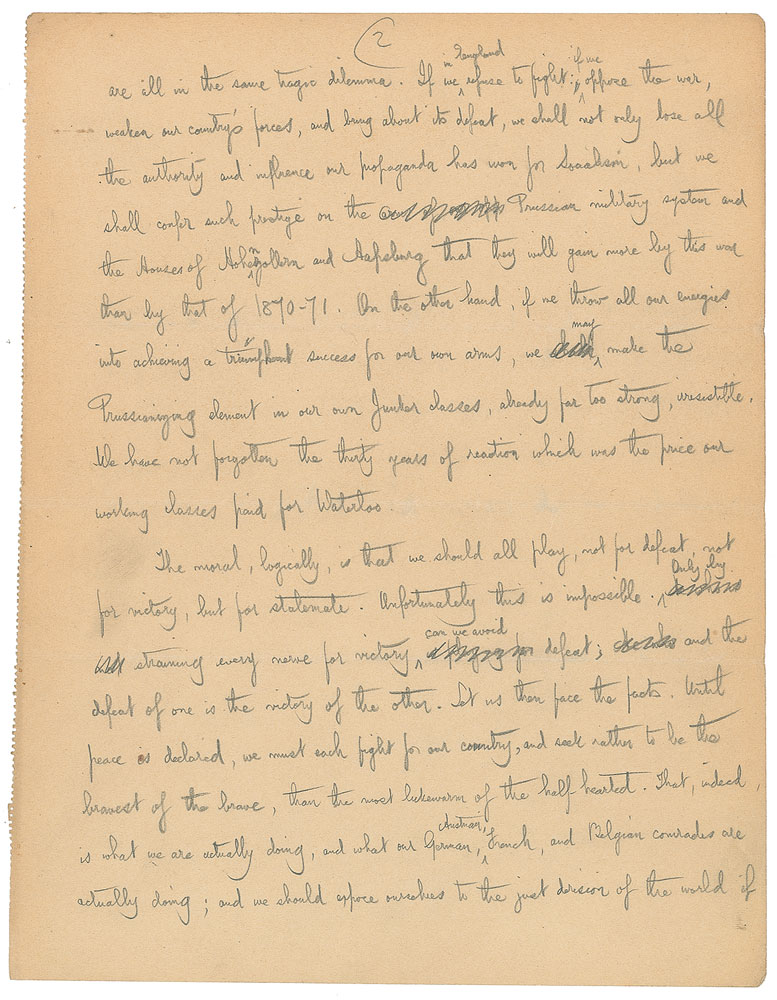 2
are all in the same tragic dilemma. If we in England refuse to fight; if we oppose the war,
weaken our country's forces, and bring about its defeat, we shall not only lose all
the authority and influence our propaganda has won for Socialism, but we
shall confer such prestige on the Prussian military system and
the Houses of Hohenzollern and Hapsburg that they will gain more by this war
than by that of 1870-71. On the other hand, if we throw all our energies
into achieving a triumphant success for our own arms, we may make the
Prussianizing element in our own Junker classes, already far too strong, irresistible.
We have not forgotten the thirty years of reaction which was the price our
working classes paid for Waterloo.
The moral, logically, is that we should all play, not for defeat, not
for victory, but for stalemate. Unfortunately this is impossible. Only by
straining every nerve for victory can we avoid defeat; and the
defeat of one is the victory of the other. Let us then face the facts. Until
peace is declared, we must each fight for our country, and seek rather to be the
bravest of the brave, than the most lukewarm of the half-hearted. That, indeed,
is what we are actually doing, and what our German, Austrian, French, and Belgian comrades are
actually doing; and we should expose ourselves to the just derision of the world if